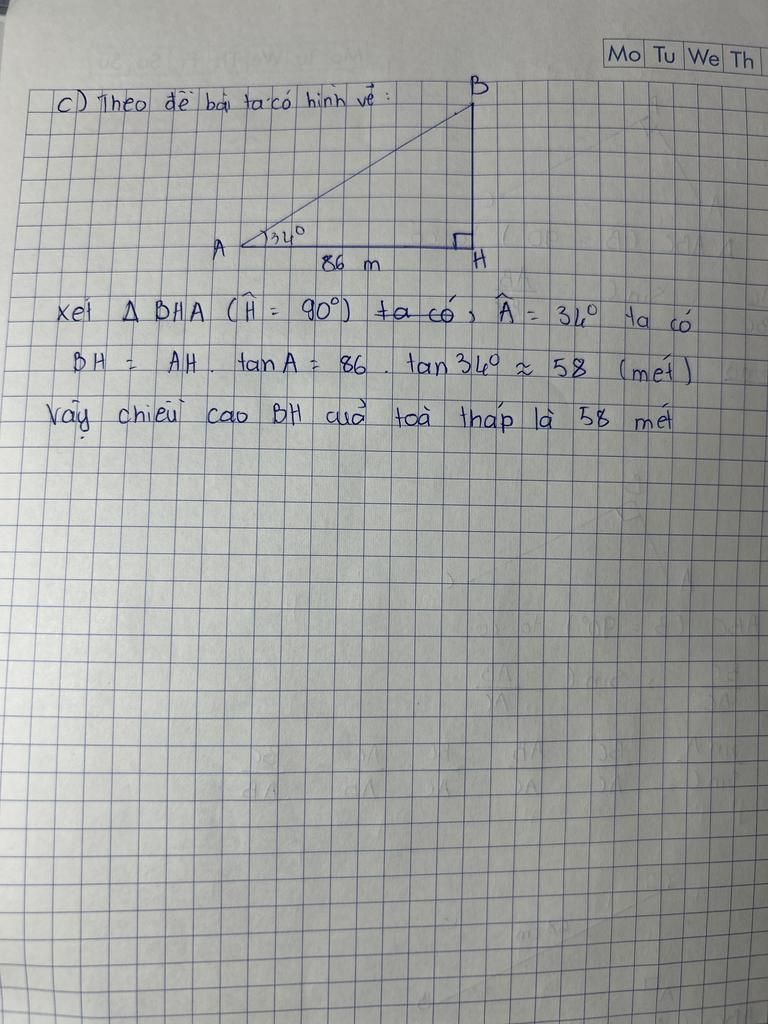 Mo Tu We Th
c) Theo đề bài ta có hình vẽ:
B
A 34°
86 m
H
Xét Δ BHA (Ĥ = 90°) ta có, Â = 34° ta có
BH = AH. tan A = 86. tan 34° ≈ 58 (mét)
Vậy chiều cao BH của toà tháp là 58 mét